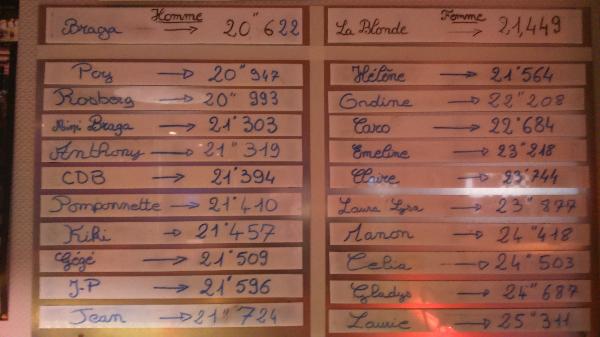 Homme
Braga → 20"622
Poy → 20"947
Rosberg → 20"993
Mimi Braga → 21"303
Anthony → 21"319
CDB → 21"394
Pomponnette → 21"410
Kiki → 21"457
Gégé → 21"509
J-P → 21"596
Jean → 21"724
Femme
La Blonde → 21,449
Hélène → 21"564
Ondine → 22"208
Caro → 22"684
Emeline → 23"218
Claire → 23"744
Laura → 23"877
Manon → 24"418
Celia → 24"503
Gladys → 24"687
Laurie → 25"311